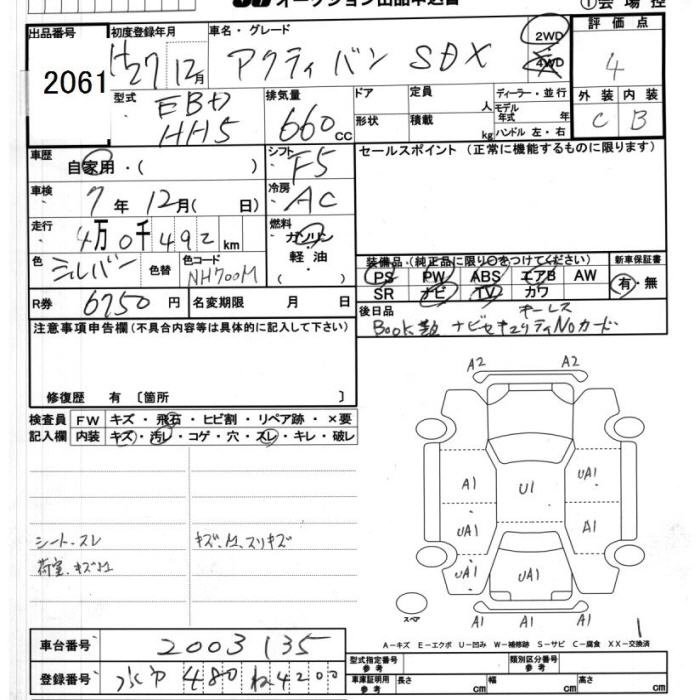 オークション出品申込書
①会場控
出品番号 2061
初度登録年月 H27 12月
車名・グレード アクティ バン SDX
2WD
4WD
評価点 4
外装 C 内装 B
型式 EBD HH5
排気量 660 cc
ドア 形状
定員 人
積載 kg
ディーラー・並行
モデル年式 年
ハンドル 左・右
車歴 自家用・( )
シフト F5
セールスポイント (正常に機能するものに限ります)
車検 7年 12月( 日)
冷房 AC
走行 4万0千492 km
燃料 ガソリン 軽油
色 シルバー 色替 色コード NH700M
装備品・(純正品に限り○をつけてください) 新車保証書
PS PW ABS エアB AW 有・無
SR ナビ TV カワ
R券 6750円 名変期限 月 日
後日品 キーレス
Book ナビセキュリティNoカード
注意事項申告欄(不具合内容等は具体的に記入して下さい)
修復歴 有 〔箇所 〕
検査員 FW キズ・飛石・ヒビ割・リペア跡・×要
記入欄 内装 キズ・汚レ・コゲ・穴・スレ・キレ・破レ
シート.スレ キズ.M.スリキズ
荷室.キズM
A2 A2
A1 U1 UA1
UA1 A1
UA1 UA1
A1 A1 A1
スペア
1
A-キズ E-エクボ U-凹み W-補修跡 S-サビ C-腐食 XX-交換済
車台番号 2003135
型式指定番号 参考 類別区分番号 参考
登録番号 水戸 480 ね 4200
車庫証明用 参考 長さ cm 幅 cm 高さ cm